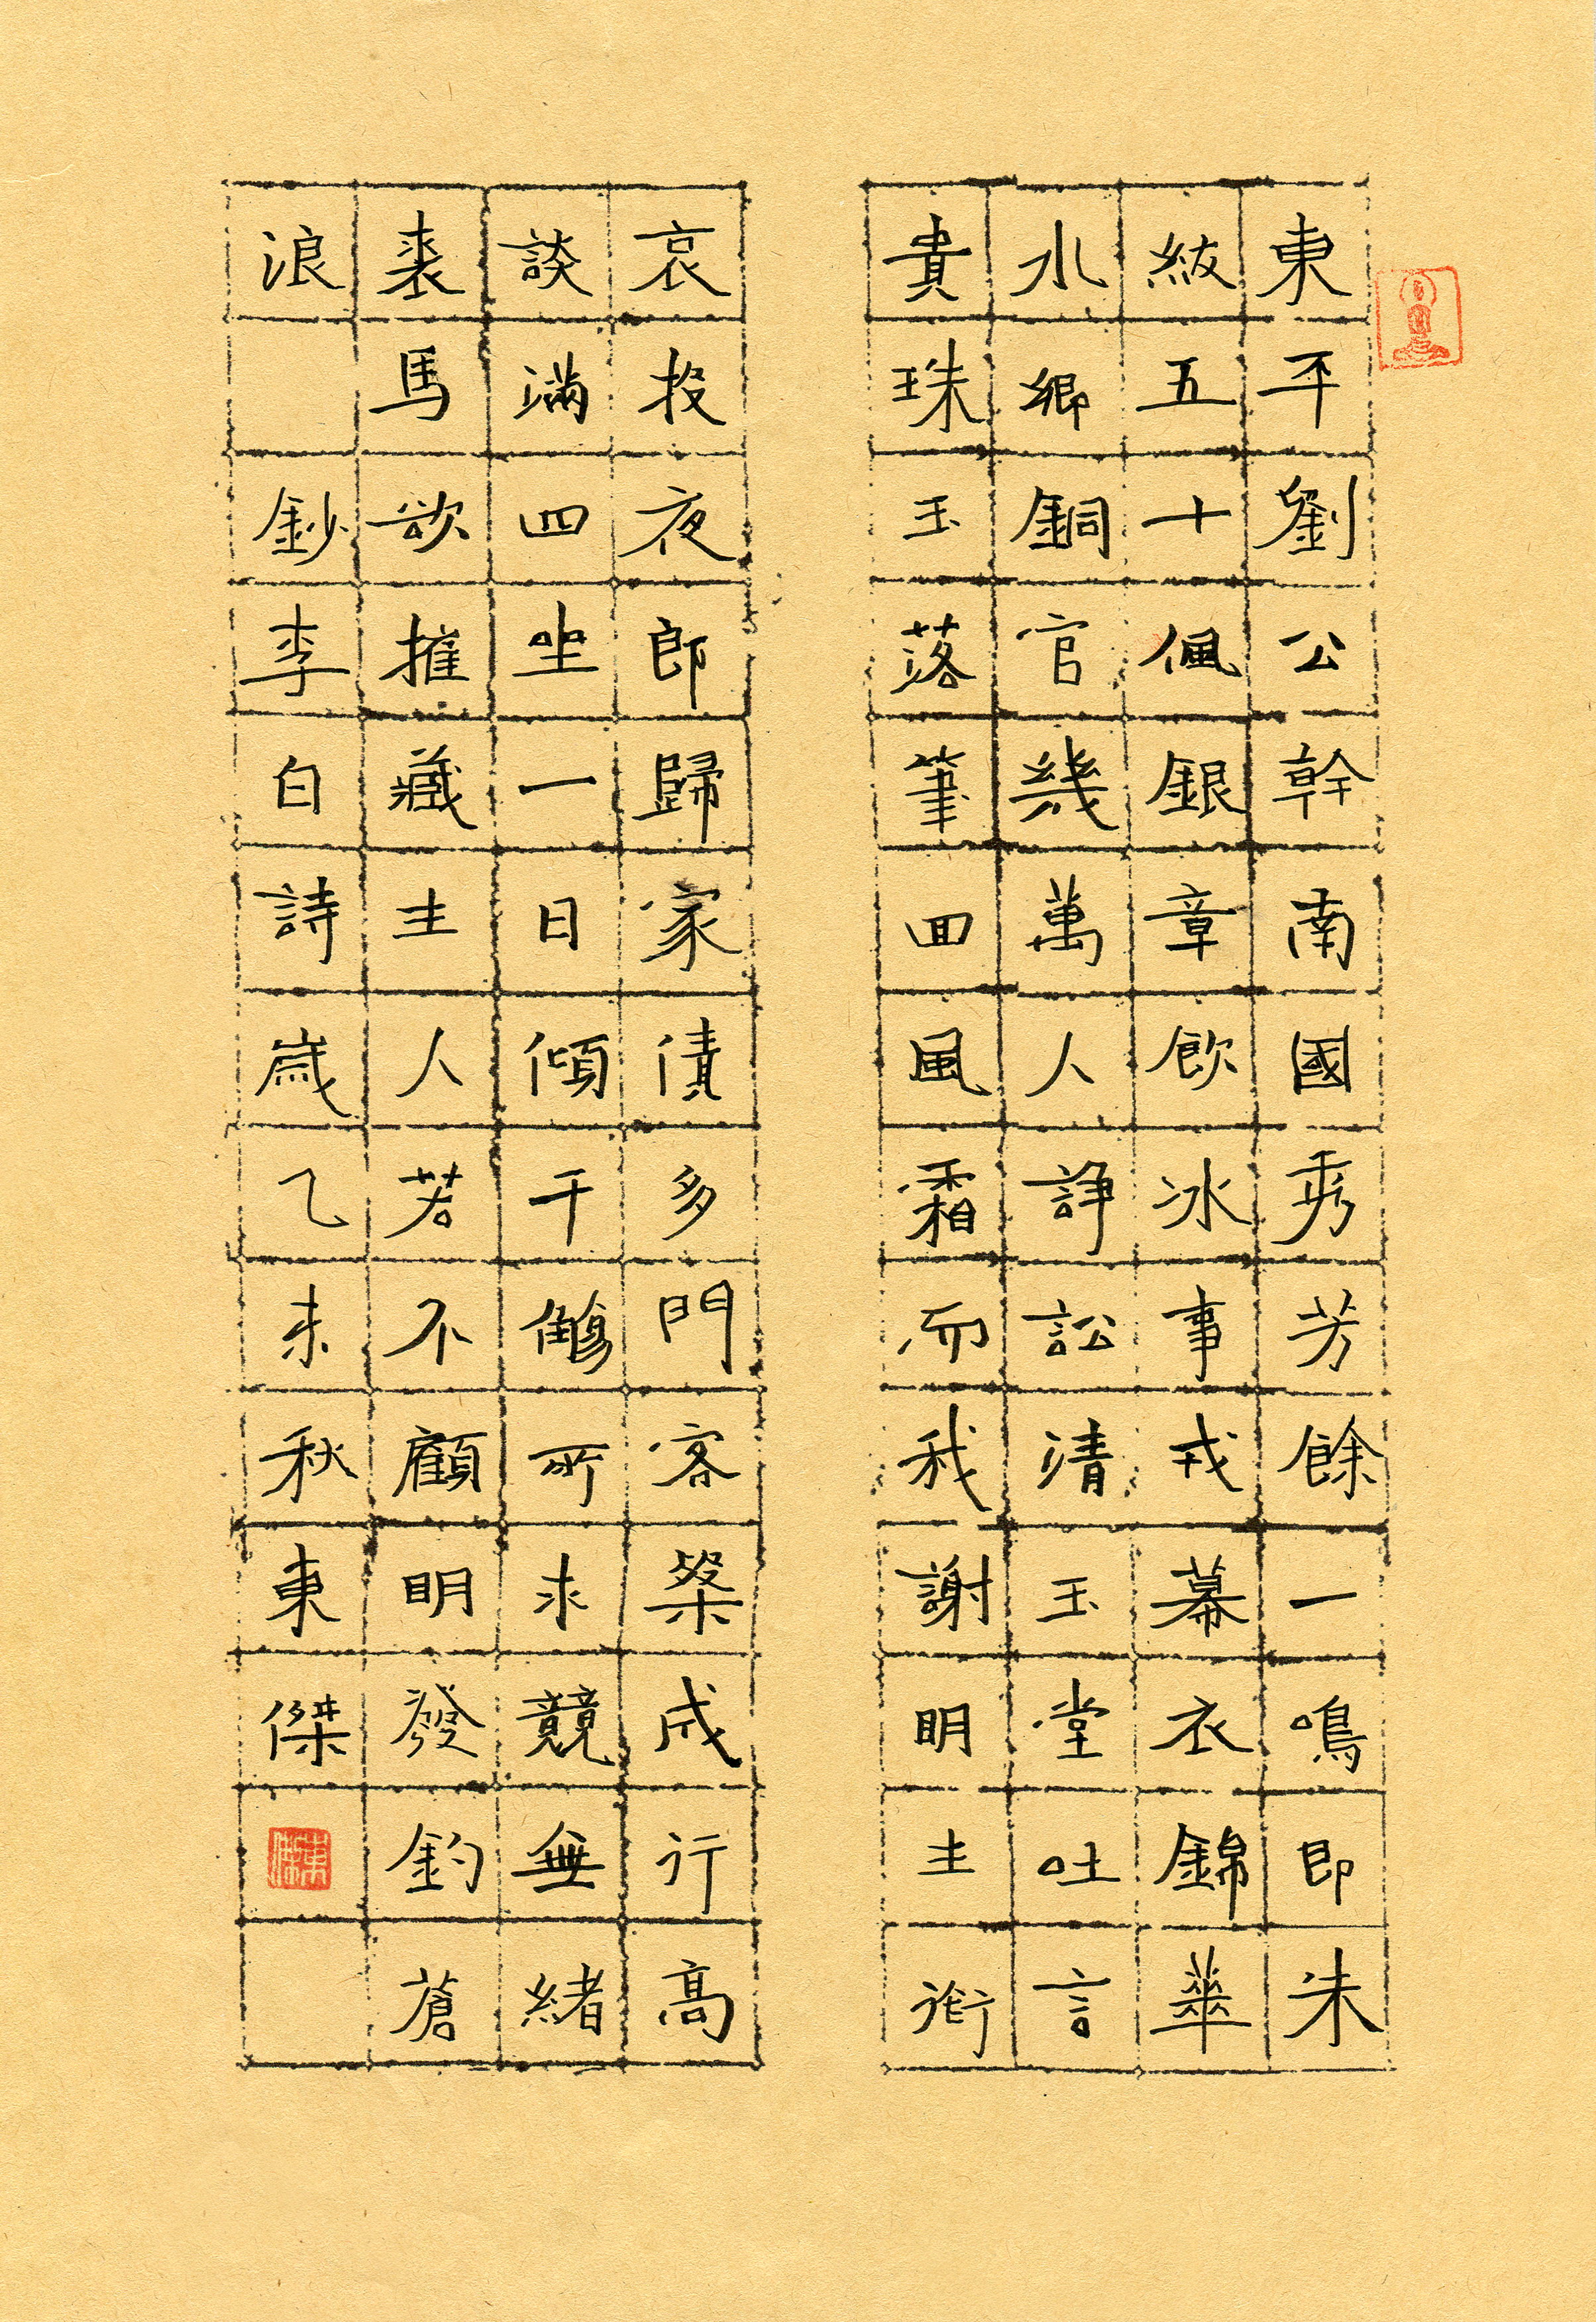 東平劉公幹南國秀芳餘一鳴即朱
紱五十佩銀章飲冰事戎幕衣錦華
水鄉銅官幾萬人諍訟清玉堂吐言
貴珠玉落筆回風霜而我謝明主銜
哀投夜郎歸家債多門客粲成行高
談滿四坐一日傾千觴所求競無緒
裘馬欲摧藏主人若不顧明發釣蒼
浪 鈔李白詩歲乙未秋東傑
東傑